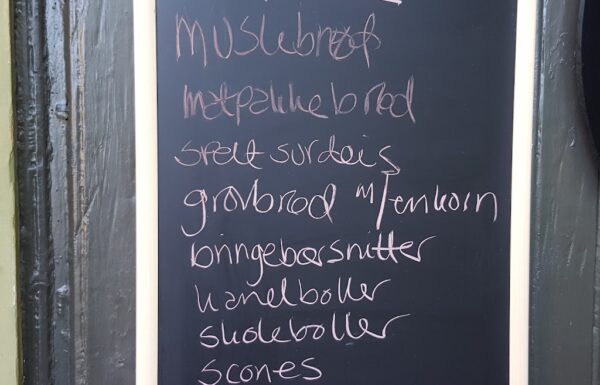 muslebrød
matpakkebrød
spelt surdeig
grovbrød m/enkorn
bringebærsnitter
kanelboller
skoleboller
scones